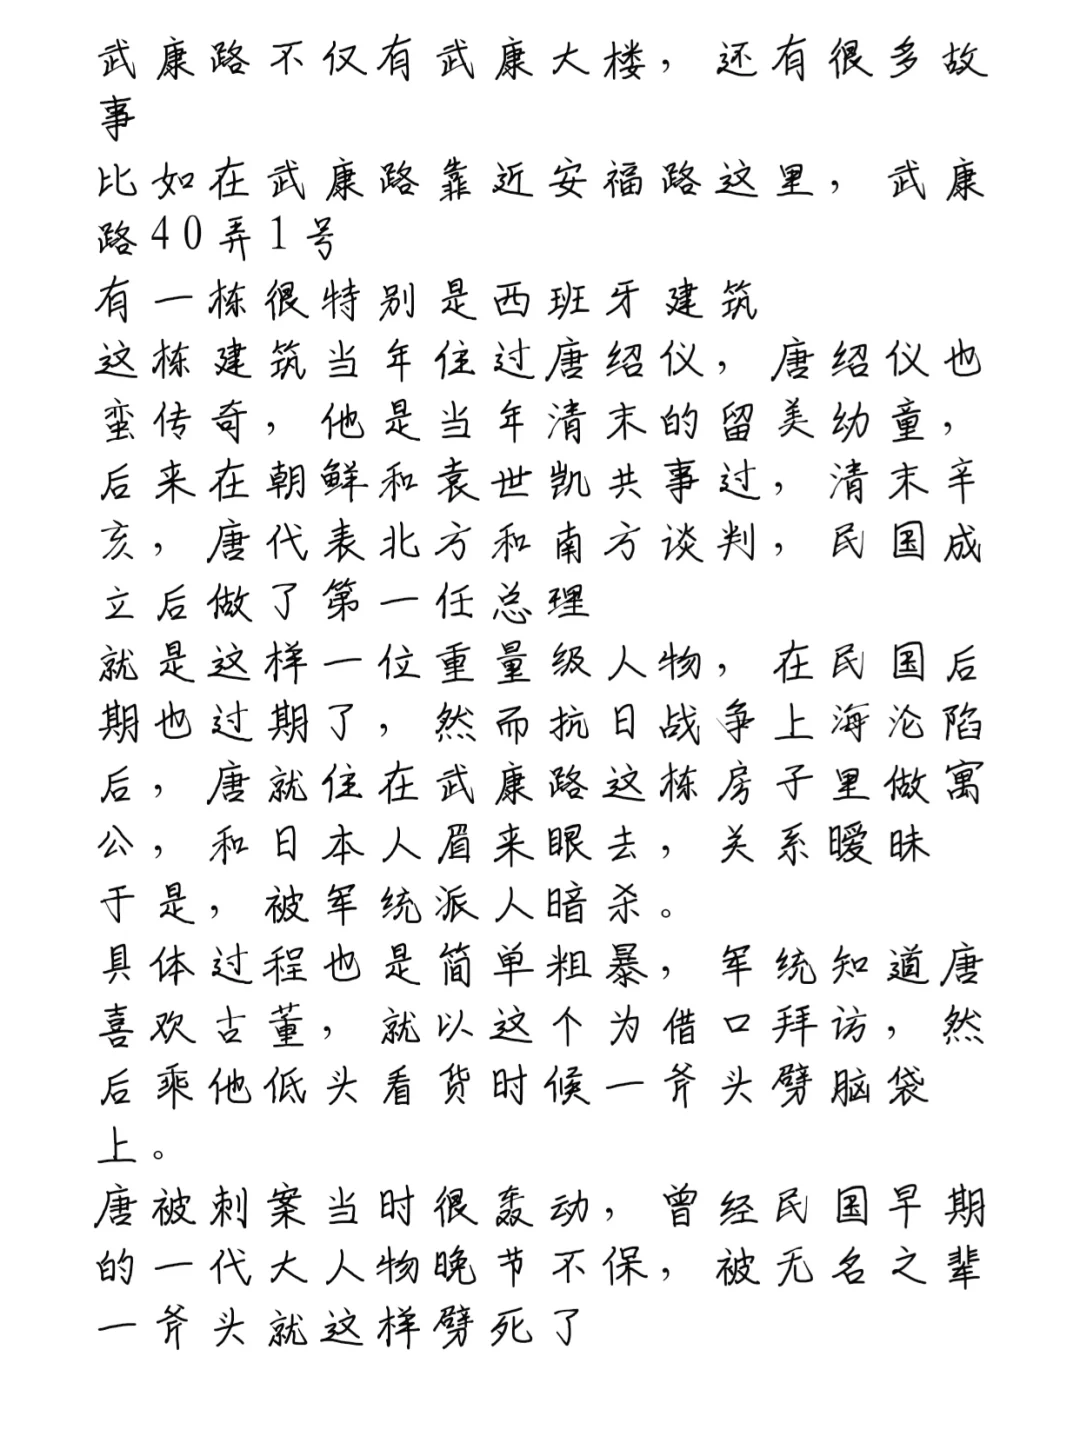 武康路不仅有武康大楼，还有很多故
事
比如在武康路靠近安福路这里，武康
路40弄1号
有一栋很特别是西班牙建筑
这栋建筑当年住过唐绍仪，唐绍仪也
蛮传奇，他是当年清末的留美幼童，
后来在朝鲜和袁世凯共事过，清末辛
亥，唐代表北方和南方谈判，民国成
立后做了第一任总理
就是这样一位重量级人物，在民国后
期也过期了，然而抗日战争上海沦陷
后，唐就住在武康路这栋房子里做寓
公，和日本人眉来眼去，关系暧昧
于是，被军统派人暗杀。
具体过程也是简单粗暴，军统知道唐
喜欢古董，就以这个为借口拜访，然
后乘他低头看货时候一斧头劈脑袋
上。
唐被刺案当时很轰动，曾经民国早期
的一代大人物晚节不保，被无名之辈
一斧头就这样劈死了